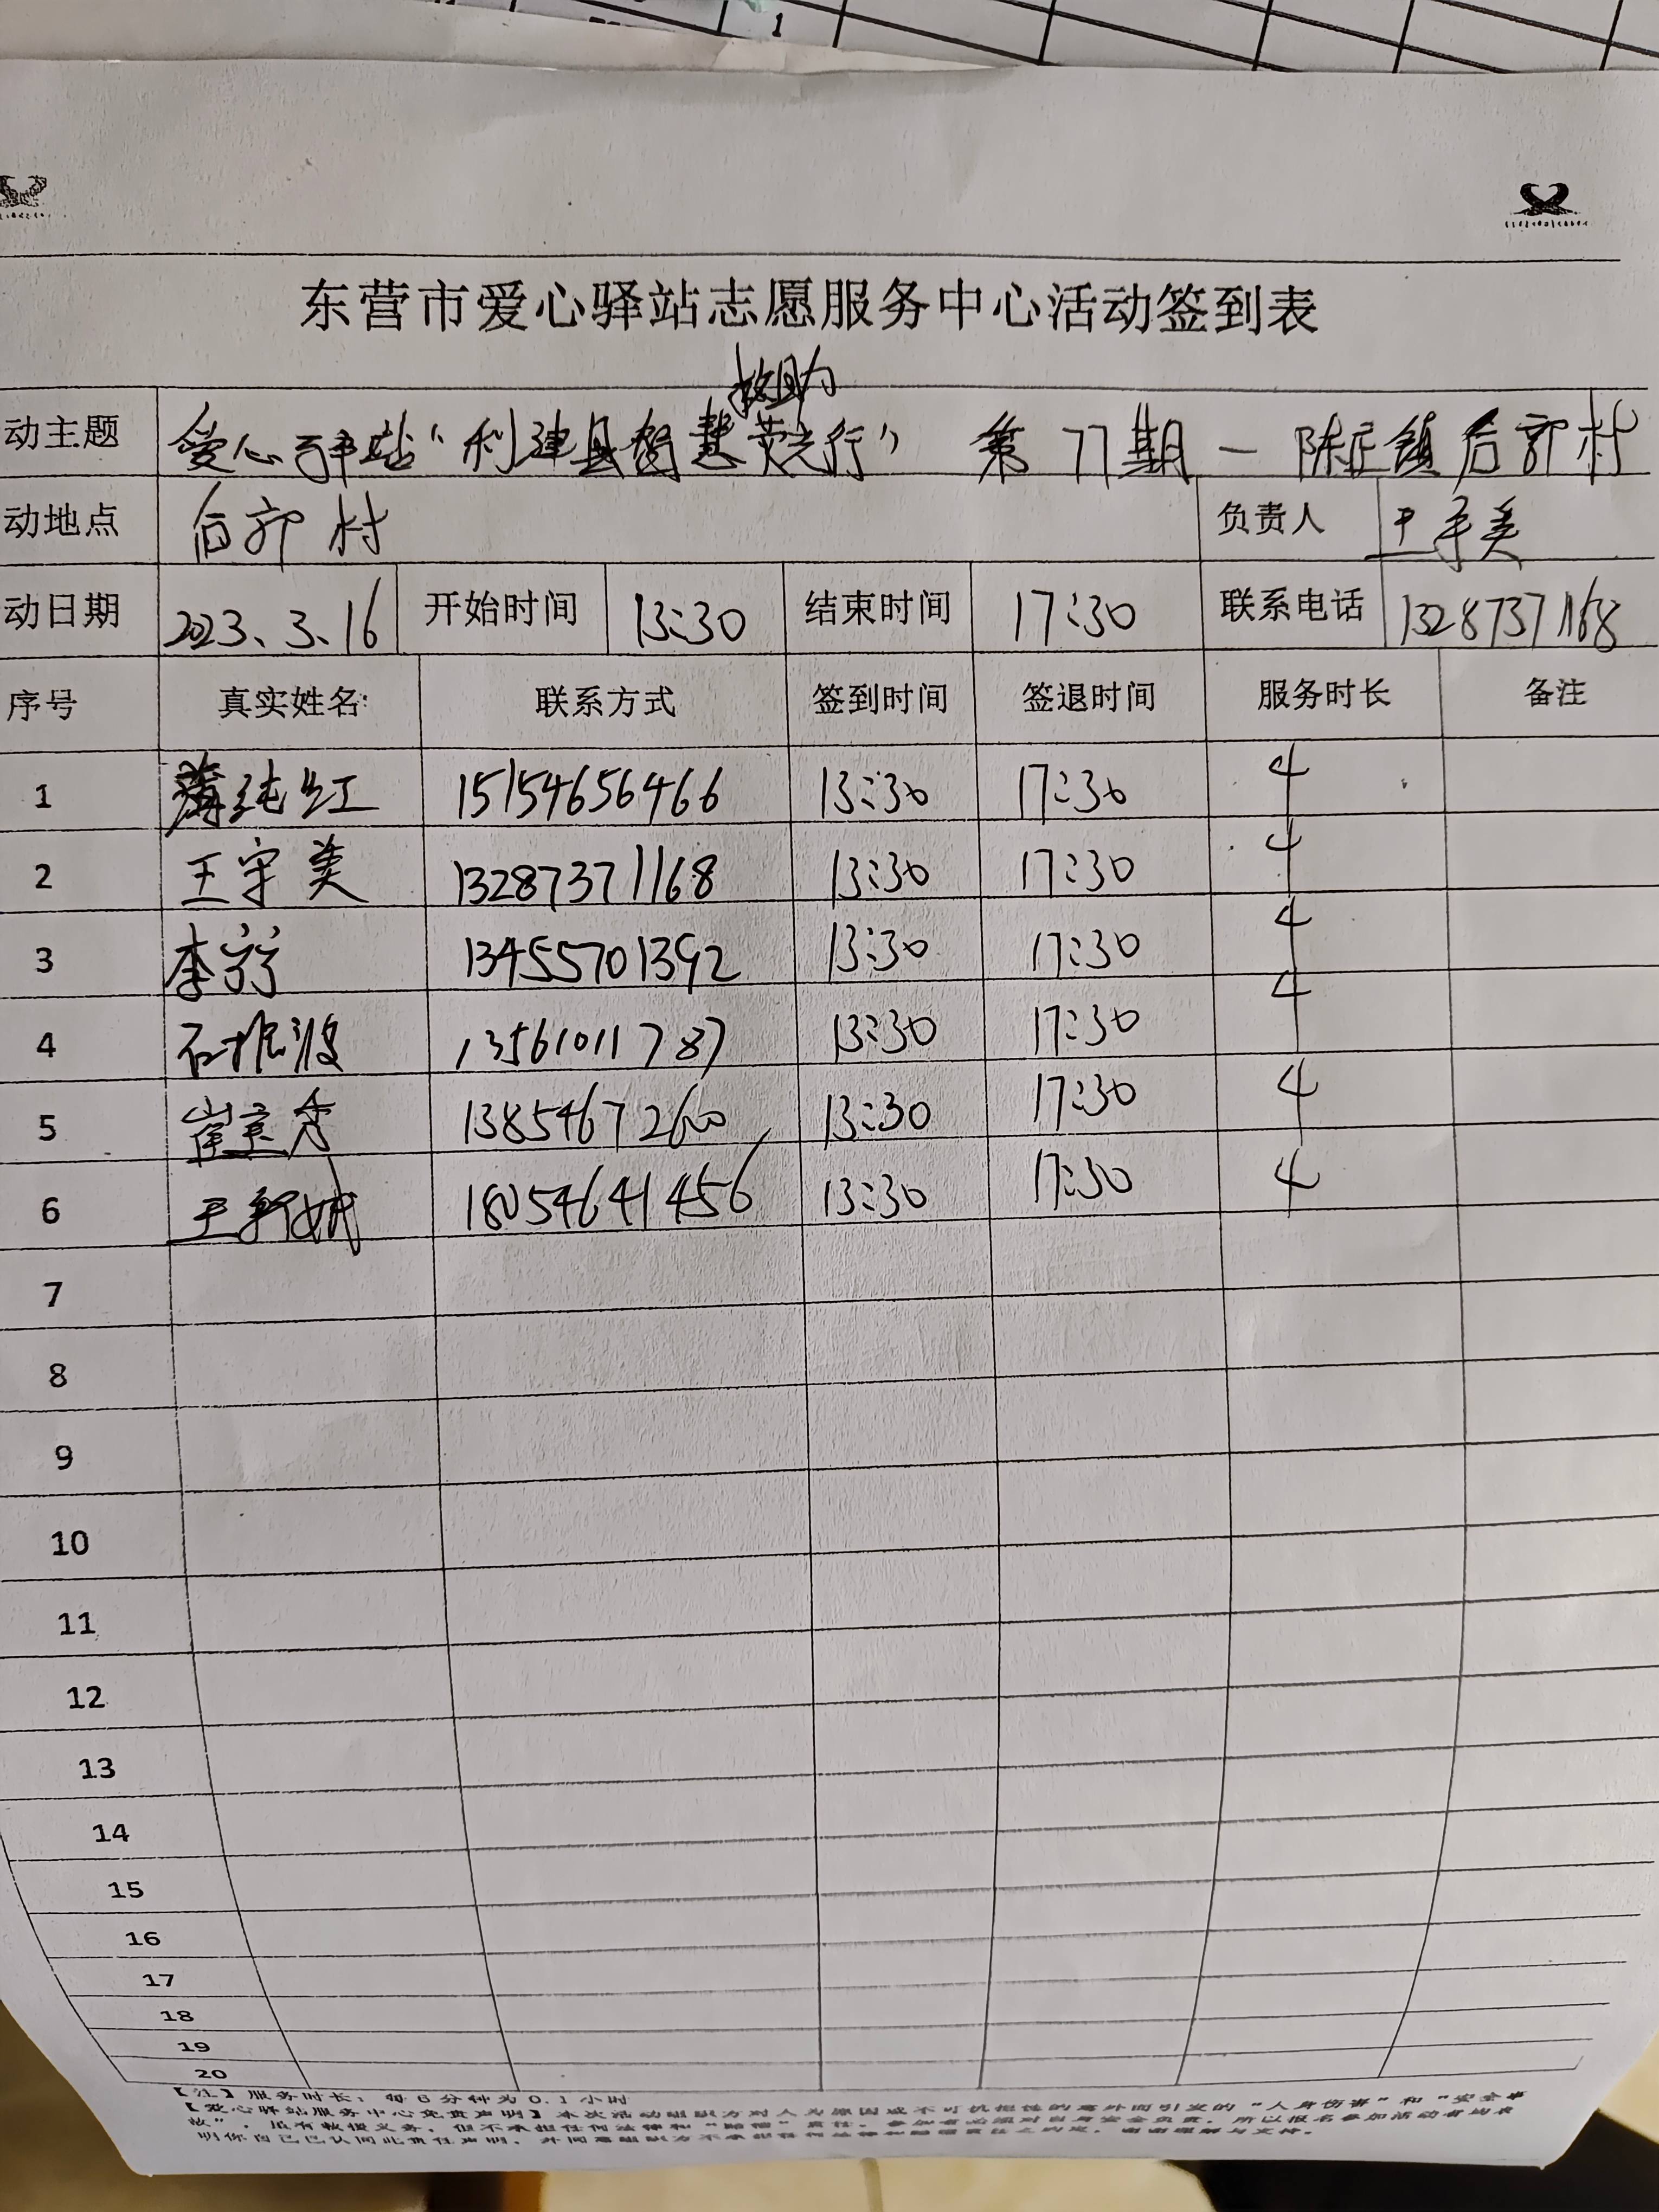 1
东营市爱心驿站志愿服务中心活动签到表
救助
动主题 爱心驿站“利津县智慧荧光行” 第77期－陈庄镇后郭村
动地点 后郭村 负责人 王守美
动日期 2023.3.16 开始时间 13:30 结束时间 17:30 联系电话 13287371168
序号 真实姓名: 联系方式 签到时间 签退时间 服务时长 备注
1 薄纯红 15154656466 13:30 17:30 4
2 王守美 13287371168 13:30 17:30 4
3 李 13455701392 13:30 17:30 4
4 石振波 13561011787 13:30 17:30 4
5 崔宝秀 13854672600 13:30 17:30 4
6 王 18054641456 13:30 17:30 4
7
8
9
10
11
12
13
14
15
16
17
18
19
20
【注】服务时长：每6分钟为0.1小时
【爱心驿站服务中心免责声明】本次活动组织方对人为原因或不可抗拒性的意外而引发的“人身伤害”和“安全事
故”，虽有救援义务，但不承担任何法律和“赔偿”责任。参加者必须对自身安全负责，所以报名参加活动者均表
明你自己已认同此责任声明，并同意组织方不承担任何法律和赔偿责任之约定，谢谢理解与支持。